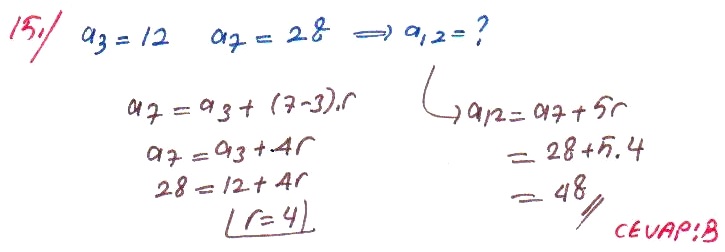 15./ a₃ = 12 a₇ = 28 ⟹ a₁₂ = ?
a₇ = a₃ + (7-3).r
a₇ = a₃ + 4r
28 = 12 + 4r
r = 4
↳ a₁₂ = a₇ + 5r
= 28 + 5.4
= 48 //
CEVAP: B